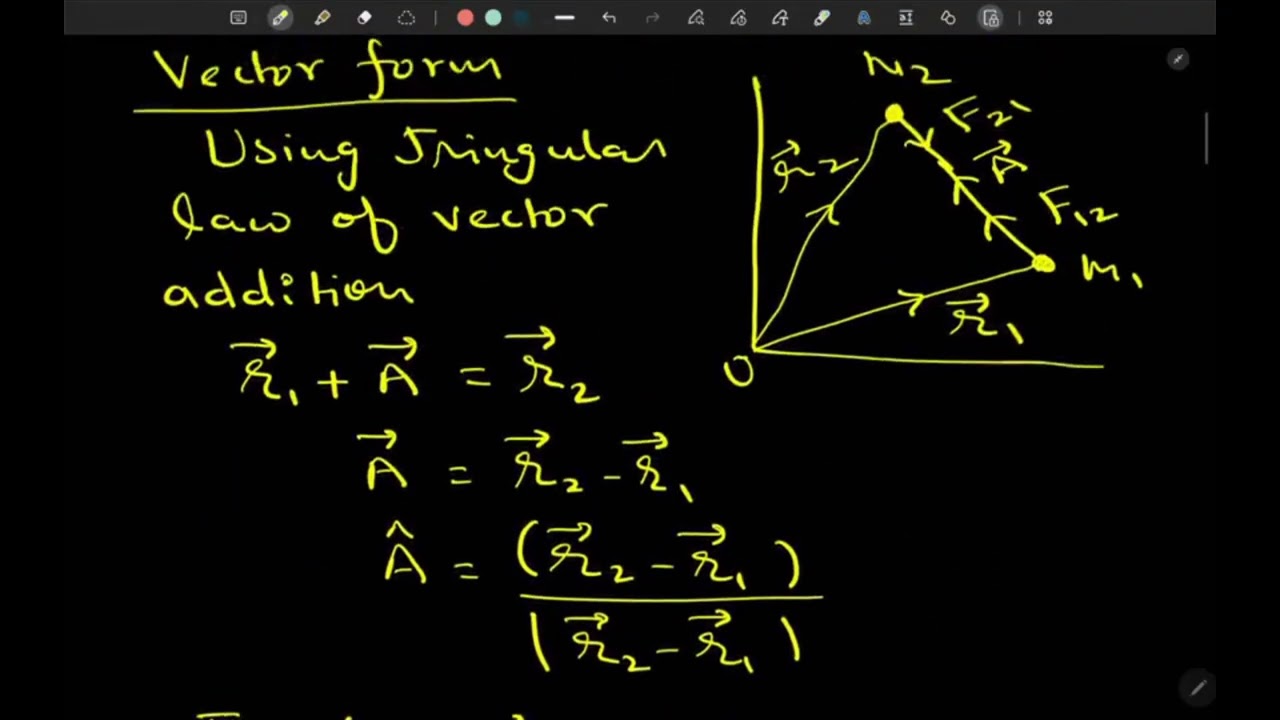 Vector form
Using Triangular
law of vector
addition
r⃗₁ + A⃗ = r⃗₂
A⃗ = r⃗₂ - r⃗₁
Â = (r⃗₂ - r⃗₁)
|r⃗₂ - r⃗₁|
m₂
F₂₁
r⃗₂
A⃗
F₁₂
m₁
r⃗₁
O